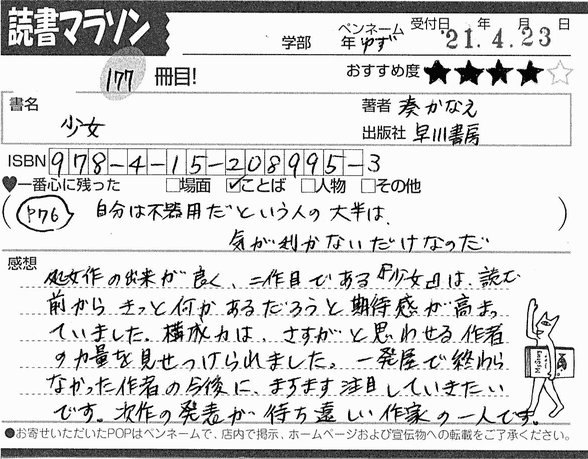 読書マラソン
学部 年 ペンネーム ゆず 受付日 年 月 日 '21.4.23
177 冊目! おすすめ度 ★★★★☆
書名 少女
著者 奏かなえ
出版社 早川書房
ISBN 978-4-15-208995-3
♥一番心に残った □場面 ☑ことば □人物 □その他
(P76) 自分は不器用だという人の大半は、
気が利かないだけなのだ
感想
処女作の出来が良く、二作目である『少女』は、読む
前から きっと何かあるだろうと期待感が高まっ
ていました。構成力は、さすがと思わせる作者
の力量を見せつけられました。一発屋で終わら
なかった作者の今後に、ますます注目していきたい
です。次作の発表が待ち遠しい作家の一人です。
●お寄せいただいたPOPはペンネームで、店内で掲示、ホームページおよび宣伝物への転載をご了承ください。